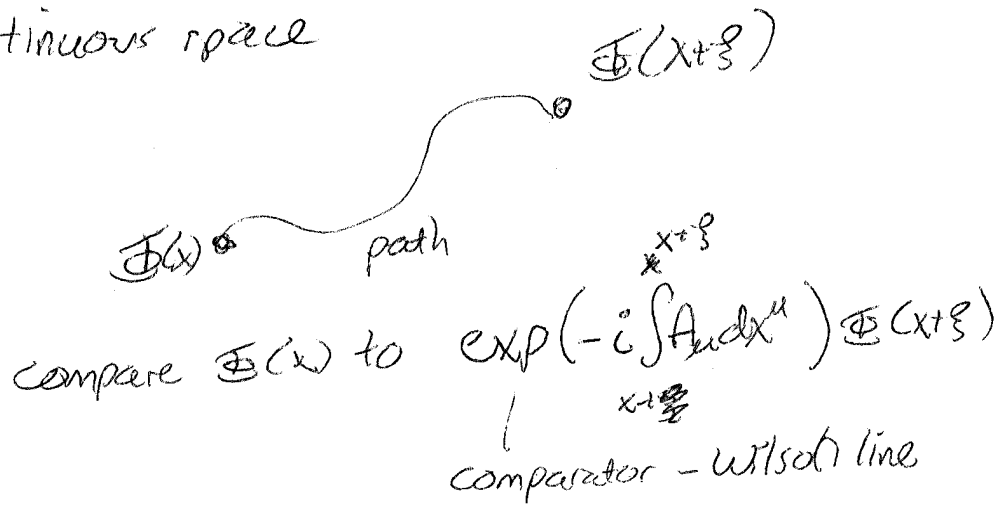 tinuous space
Φ(x+ξ)
Φ(x)
path
x+ξ
compare Φ(x) to exp(-i∫A_μdx^μ)Φ(x+ξ)
x
comparator - Wilson line